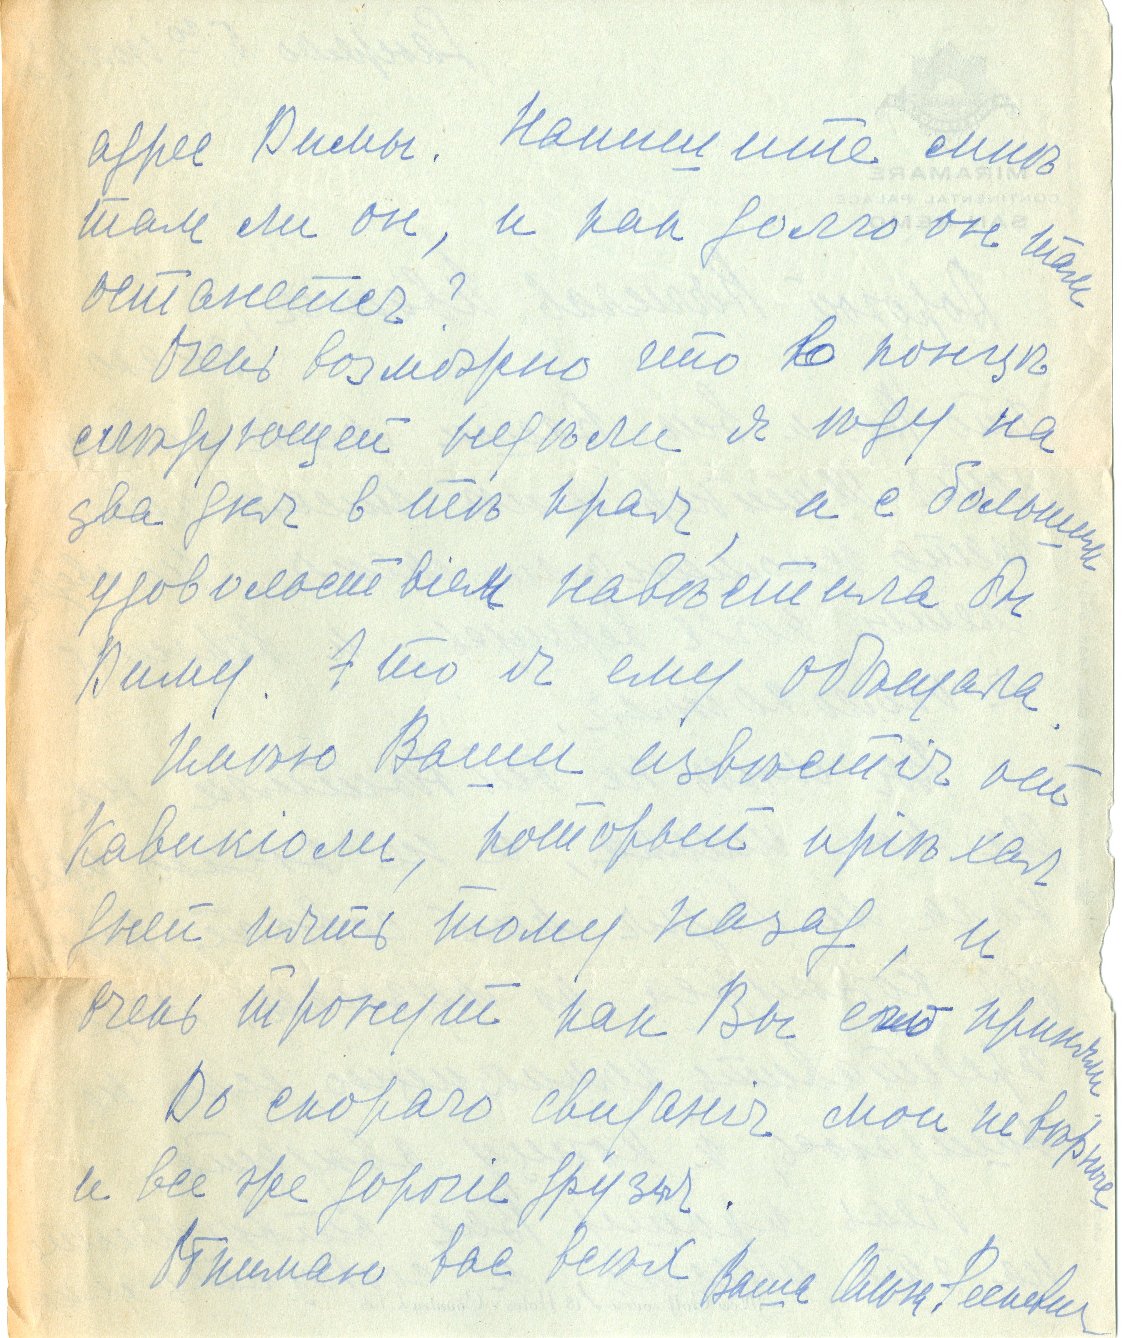 адрес Димы. Напишите мнѣ
там ли он, и как долго он там
останется?
Очень возможно что в концѣ
слѣдующей недѣли я ѣду на
два дня в тѣ края, и с большим
удовольствіем навѣстила бы
Диму. Это я ему обѣщала.
Имѣю Ваши извѣстія от
Кавикіоли, который пріѣхал
дней пять тому назад, и
очень тронут как Вы его приняли.
До скораго свиданія мои невѣрные
и все же дорогіе друзья.
Обнимаю вас всѣх Ваша